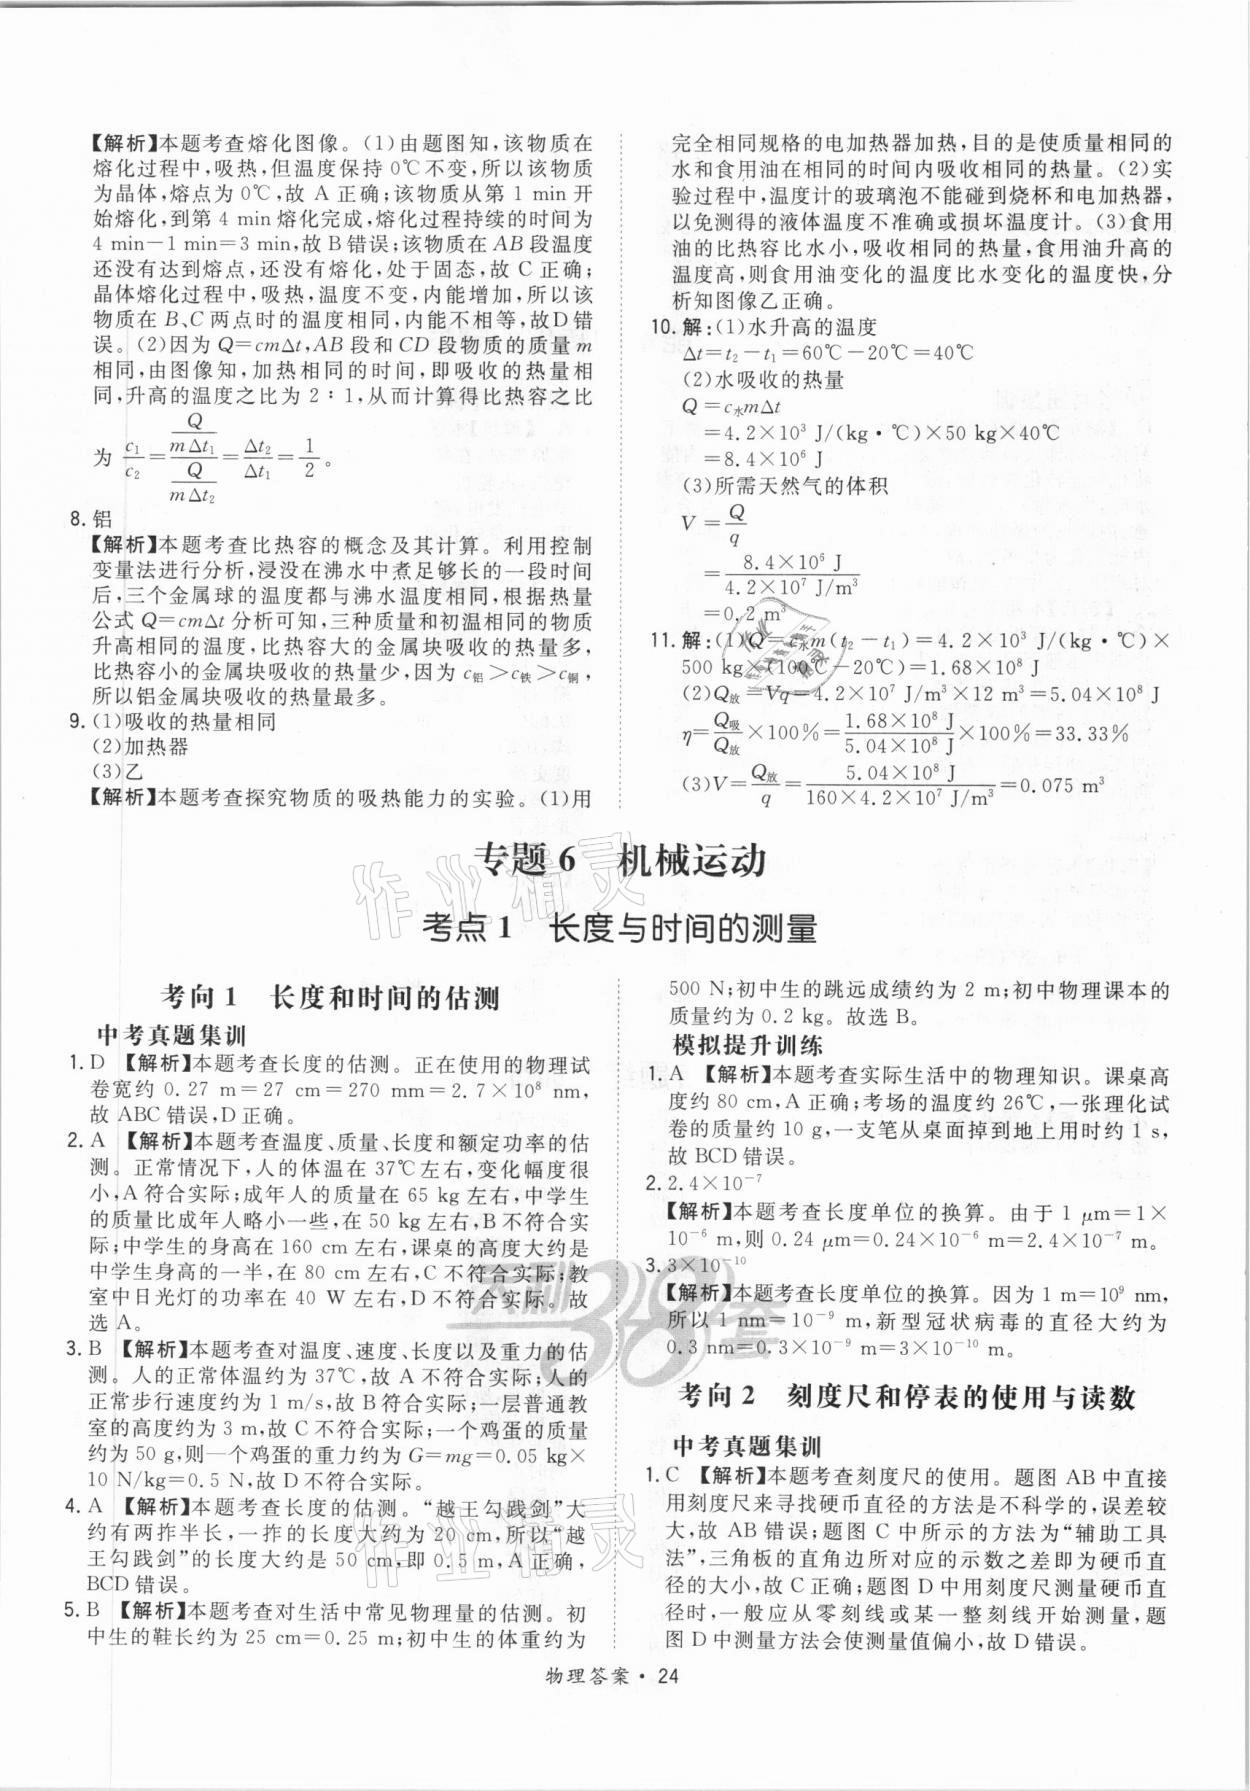 【解析】本题考查熔化图像。(1)由题图知,该物质在
熔化过程中,吸热,但温度保持 0℃不变,所以该物质
为晶体,熔点为 0℃,故 A 正确;该物质从第 1 min 开
始熔化,到第 4 min 熔化完成,熔化过程持续的时间为
4 min－1 min＝3 min,故 B 错误;该物质在 AB 段温度
还没有达到熔点,还没有熔化,处于固态,故 C 正确;
晶体熔化过程中,吸热,温度不变,内能增加,所以该
物质在 B、C 两点时的温度相同,内能不相等,故 D 错
误。(2)因为 Q＝cmΔt,AB 段和 CD 段物质的质量 m
相同,由图像知,加热相同的时间,即吸收的热量相
同,升高的温度之比为 2∶1,从而计算得比热容之比
为 c₁/c₂＝(Q/mΔt₁)/(Q/mΔt₂)＝Δt₂/Δt₁＝1/2。
8. 铝
【解析】本题考查比热容的概念及其计算。利用控制
变量法进行分析,浸没在沸水中煮足够长的一段时间
后,三个金属球的温度都与沸水温度相同,根据热量
公式 Q＝cmΔt 分析可知,三种质量和初温相同的物质
升高相同的温度,比热容大的金属块吸收的热量多,
比热容小的金属块吸收的热量少,因为 c铝＞c铁＞c铜,
所以铝金属块吸收的热量最多。
9. (1)吸收的热量相同
(2)加热器
(3)乙
【解析】本题考查探究物质的吸热能力的实验。(1)用
完全相同规格的电加热器加热,目的是使质量相同的
水和食用油在相同的时间内吸收相同的热量。(2)实
验过程中,温度计的玻璃泡不能碰到烧杯和电加热器,
以免测得的液体温度不准确或损坏温度计。(3)食用
油的比热容比水小,吸收相同的热量,食用油升高的
温度高,则食用油变化的温度比水变化的温度快,分
析知图像乙正确。
10. 解:(1)水升高的温度
Δt＝t₂－t₁＝60℃－20℃＝40℃
(2)水吸收的热量
Q＝c水mΔt
＝4.2×10³ J/(kg·℃)×50 kg×40℃
＝8.4×10⁶ J
(3)所需天然气的体积
V＝Q/q
＝8.4×10⁶ J/4.2×10⁷ J/m³
＝0.2 m³
11. 解:(1)Q＝c水m(t₂－t₁)＝4.2×10³ J/(kg·℃)×
500 kg×(100℃－20℃)＝1.68×10⁸ J
(2)Q放＝Vq＝4.2×10⁷ J/m³×12 m³＝5.04×10⁸ J
η＝Q吸/Q放×100%＝1.68×10⁸ J/5.04×10⁸ J×100%＝33.33%
(3)V＝Q放/q＝5.04×10⁸ J/160×4.2×10⁷ J/m³＝0.075 m³
专题 6 机械运动
考点 1 长度与时间的测量
考向 1 长度和时间的估测
中考真题集训
1. D 【解析】本题考查长度的估测。正在使用的物理试
卷宽约 0.27 m＝27 cm＝270 mm＝2.7×10⁸ nm,
故 ABC 错误,D 正确。
2. A 【解析】本题考查温度、质量、长度和额定功率的估
测。正常情况下,人的体温在 37℃左右,变化幅度很
小,A 符合实际;成年人的质量在 65 kg 左右,中学生
的质量比成年人略小一些,在 50 kg 左右,B 不符合实
际;中学生的身高在 160 cm 左右,课桌的高度大约是
中学生身高的一半,在 80 cm 左右,C 不符合实际;教
室中日光灯的功率在 40 W 左右,D 不符合实际。故
选 A。
3. B 【解析】本题考查对温度、速度、长度以及重力的估
测。人的正常体温约为 37℃,故 A 不符合实际;人的
正常步行速度约为 1 m/s,故 B 符合实际;一层普通教
室的高度约为 3 m,故 C 不符合实际;一个鸡蛋的质量
约为 50 g,则一个鸡蛋的重力约为 G＝mg＝0.05 kg×
10 N/kg＝0.5 N,故 D 不符合实际。
4. A 【解析】本题考查长度的估测。“越王勾践剑”大
约有两拃半长,一拃的长度大约为 20 cm,所以“越
王勾践剑”的长度大约是 50 cm,即 0.5 m,A 正确,
BCD 错误。
5. B 【解析】本题考查对生活中常见物理量的估测。初
中生的鞋长约为 25 cm＝0.25 m;初中生的体重约为
500 N;初中生的跳远成绩约为 2 m;初中物理课本的
质量约为 0.2 kg。故选 B。
模拟提升训练
1. A 【解析】本题考查实际生活中的物理知识。课桌高
度约 80 cm,A 正确;考场的温度约 26℃,一张理化试
卷的质量约 10 g,一支笔从桌面掉到地上用时约 1 s,
故 BCD 错误。
2. 2.4×10⁻⁷
【解析】本题考查长度单位的换算。由于 1 μm＝1×
10⁻⁶ m,则 0.24 μm＝0.24×10⁻⁶ m＝2.4×10⁻⁷ m。
3. 3×10⁻¹⁰
【解析】本题考查长度单位的换算。因为 1 m＝10⁹ nm,
所以 1 nm＝10⁻⁹ m,新型冠状病毒的直径大约为
0.3 nm＝0.3×10⁻⁹ m＝3×10⁻¹⁰ m。
考向 2 刻度尺和停表的使用与读数
中考真题集训
1. C 【解析】本题考查刻度尺的使用。题图 AB 中直接
用刻度尺来寻找硬币直径的方法是不科学的,误差较
大,故 AB 错误;题图 C 中所示的方法为“辅助工具
法”,三角板的直角边所对应的示数之差即为硬币直
径的大小,故 C 正确;题图 D 中用刻度尺测量硬币直
径时,一般应从零刻线或某一整刻线开始测量,题
图 D 中测量方法会使测量值偏小,故 D 错误。
物理答案·24
作业精灵
天利38套
作业精灵